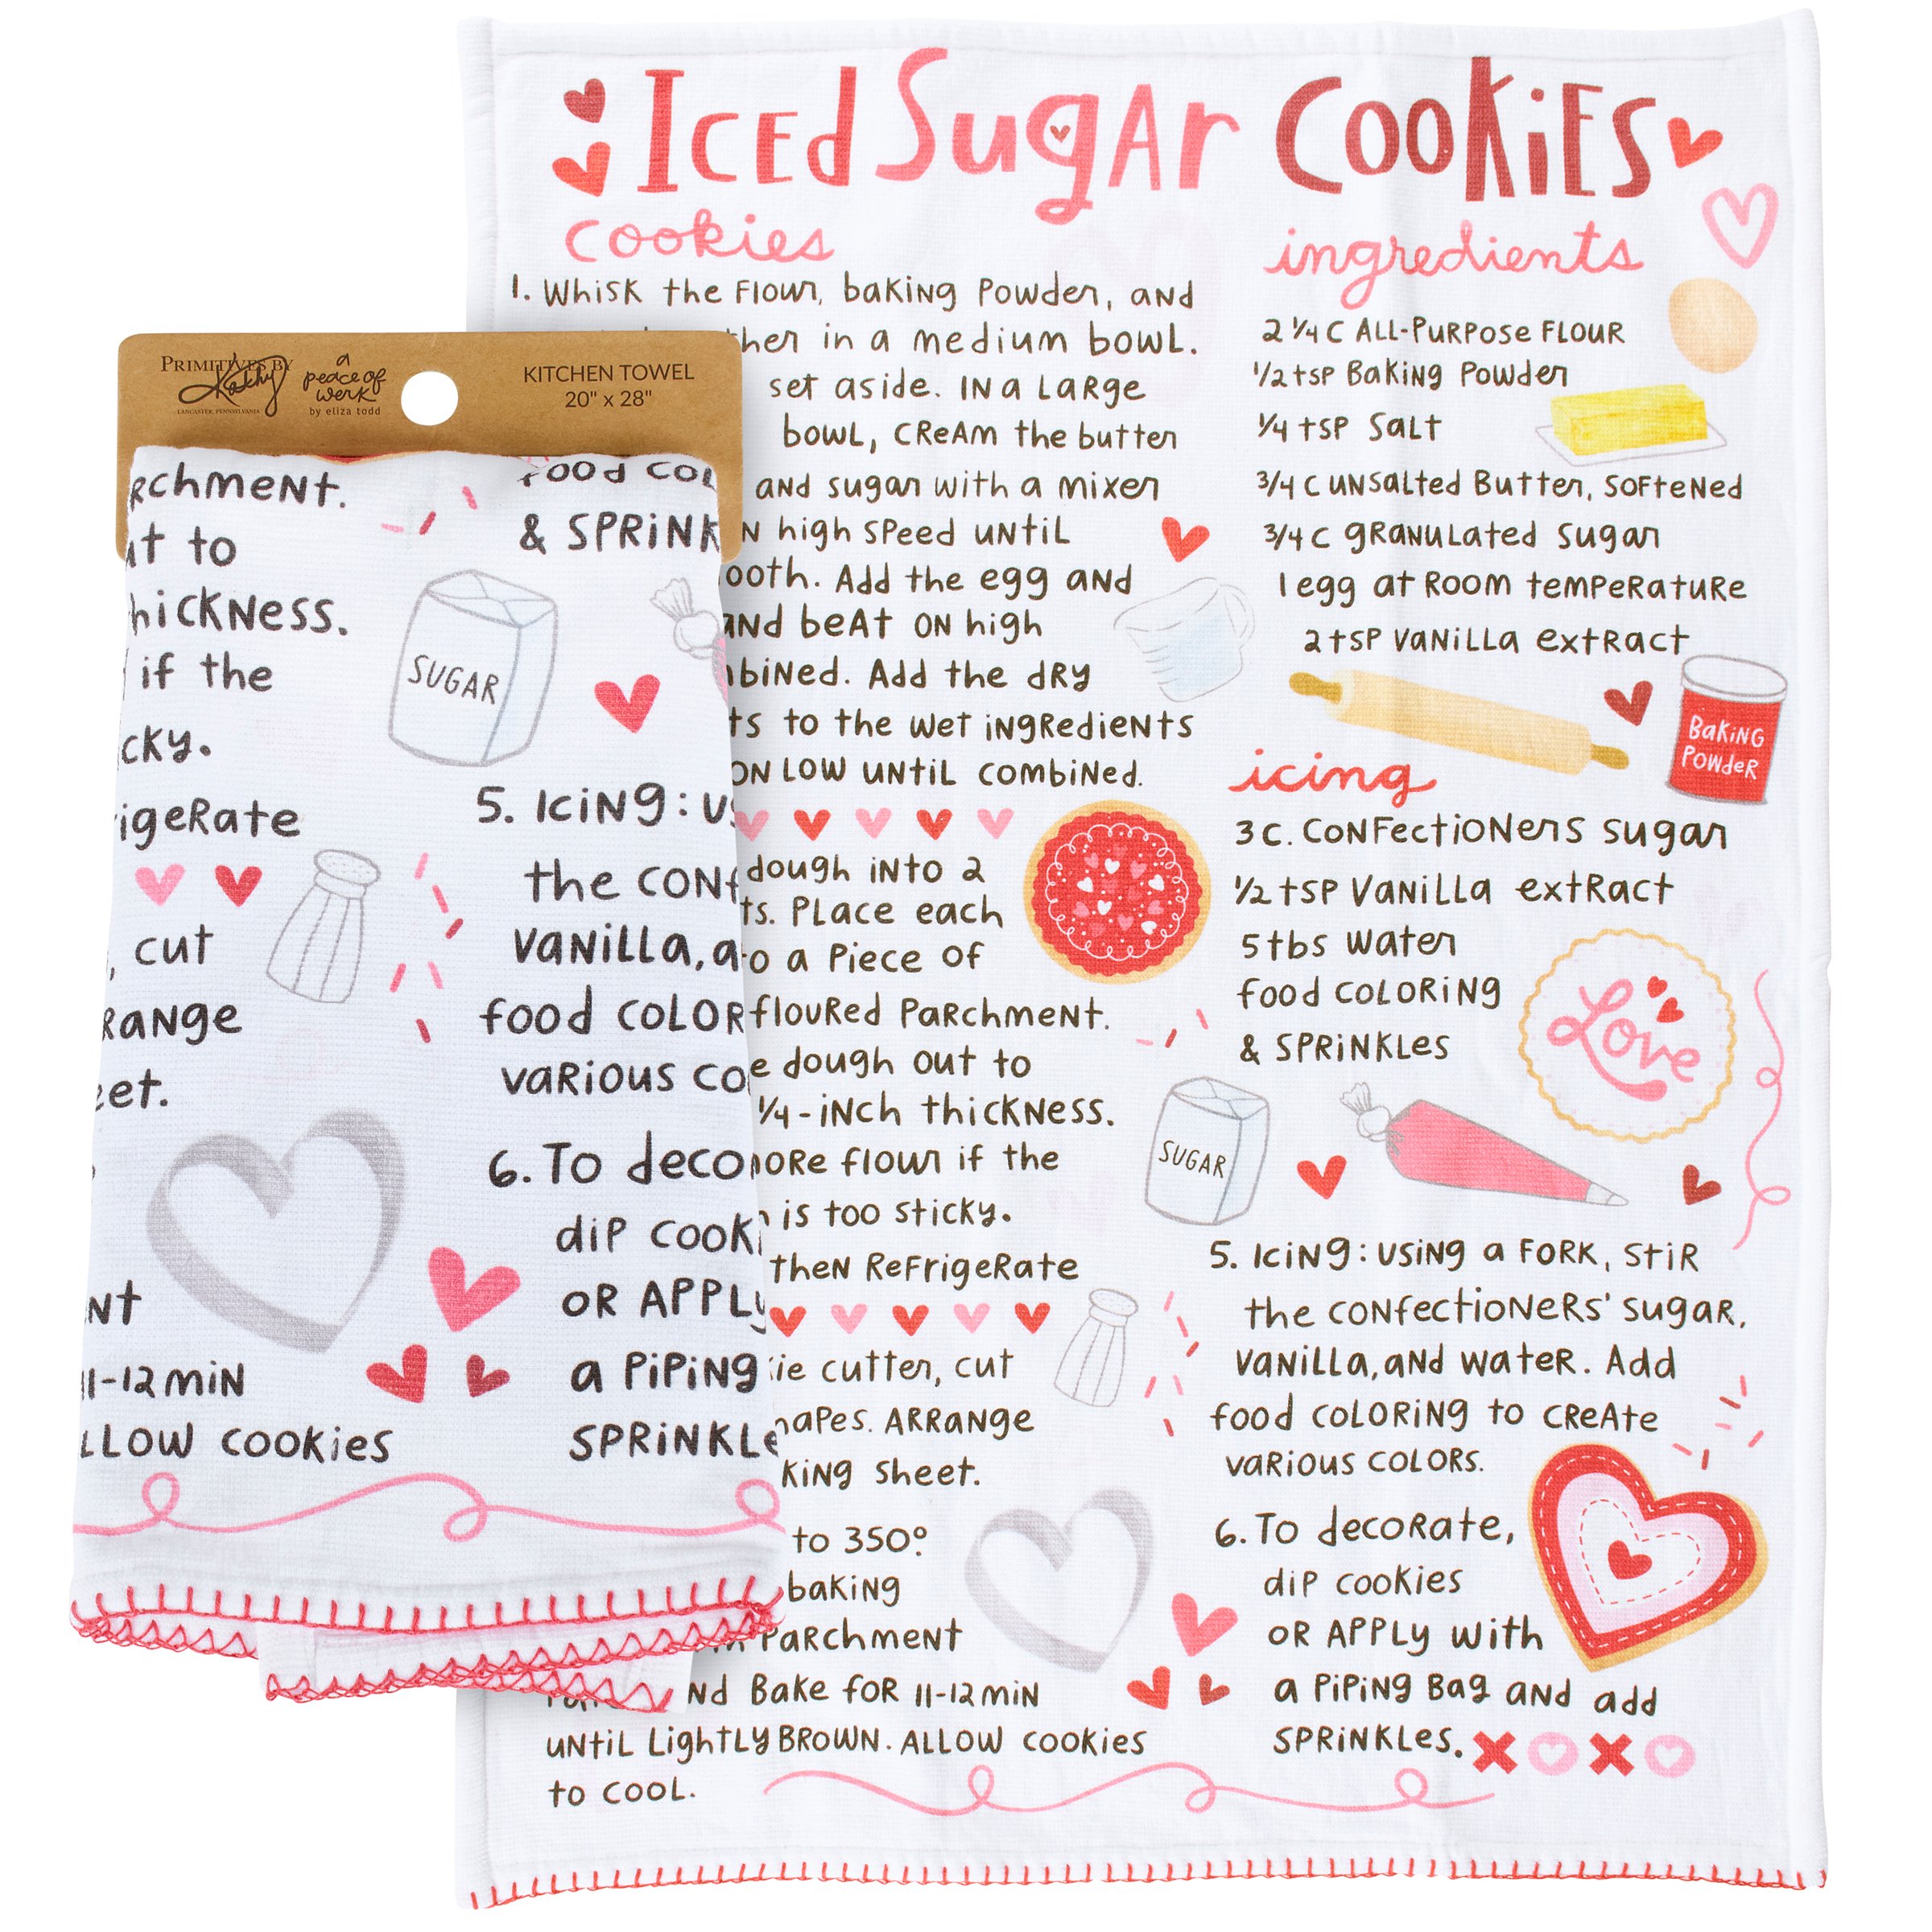 Iced Sugar Cookies
cookies
1. Whisk the flour, baking powder, and
in a medium bowl.
set aside. In a large
bowl, cream the butter
and sugar with a mixer
high speed until
Add the egg and
and beat on high
Add the dry
to the wet ingredients
on low until combined.
dough into 2
Place each
a piece of
floured parchment.
dough out to
1/4-inch thickness.
flour if the
is too sticky.
then refrigerate
cutter, cut
Arrange
sheet.
to 350°
baking
parchment
Bake for 11-12 min
until lightly brown. Allow cookies
to cool.
ingredients
2 1/4 c all-purpose flour
1/2 tsp baking powder
1/4 tsp salt
3/4 c unsalted butter, softened
3/4 c granulated sugar
1 egg at room temperature
2 tsp vanilla extract
Baking
Powder
icing
3 c. confectioners sugar
1/2 tsp vanilla extract
5 tbs water
food coloring
& sprinkles
Love
SUGAR
5. Icing: using a fork, stir
the confectioners' sugar,
vanilla, and water. Add
food coloring to create
various colors.
6. To decorate,
dip cookies
or apply with
a piping bag and add
sprinkles.
PRIMITIVES BY
Kathy
LANCASTER, PENNSYLVANIA
a
peace of
werk
by eliza todd
KITCHEN TOWEL
20" x 28"
to
if the
SUGAR
cut
11-12 min
cookies
food
&
5. Icing:
the
vanilla,
food
various
6. To
dip
or
a piping